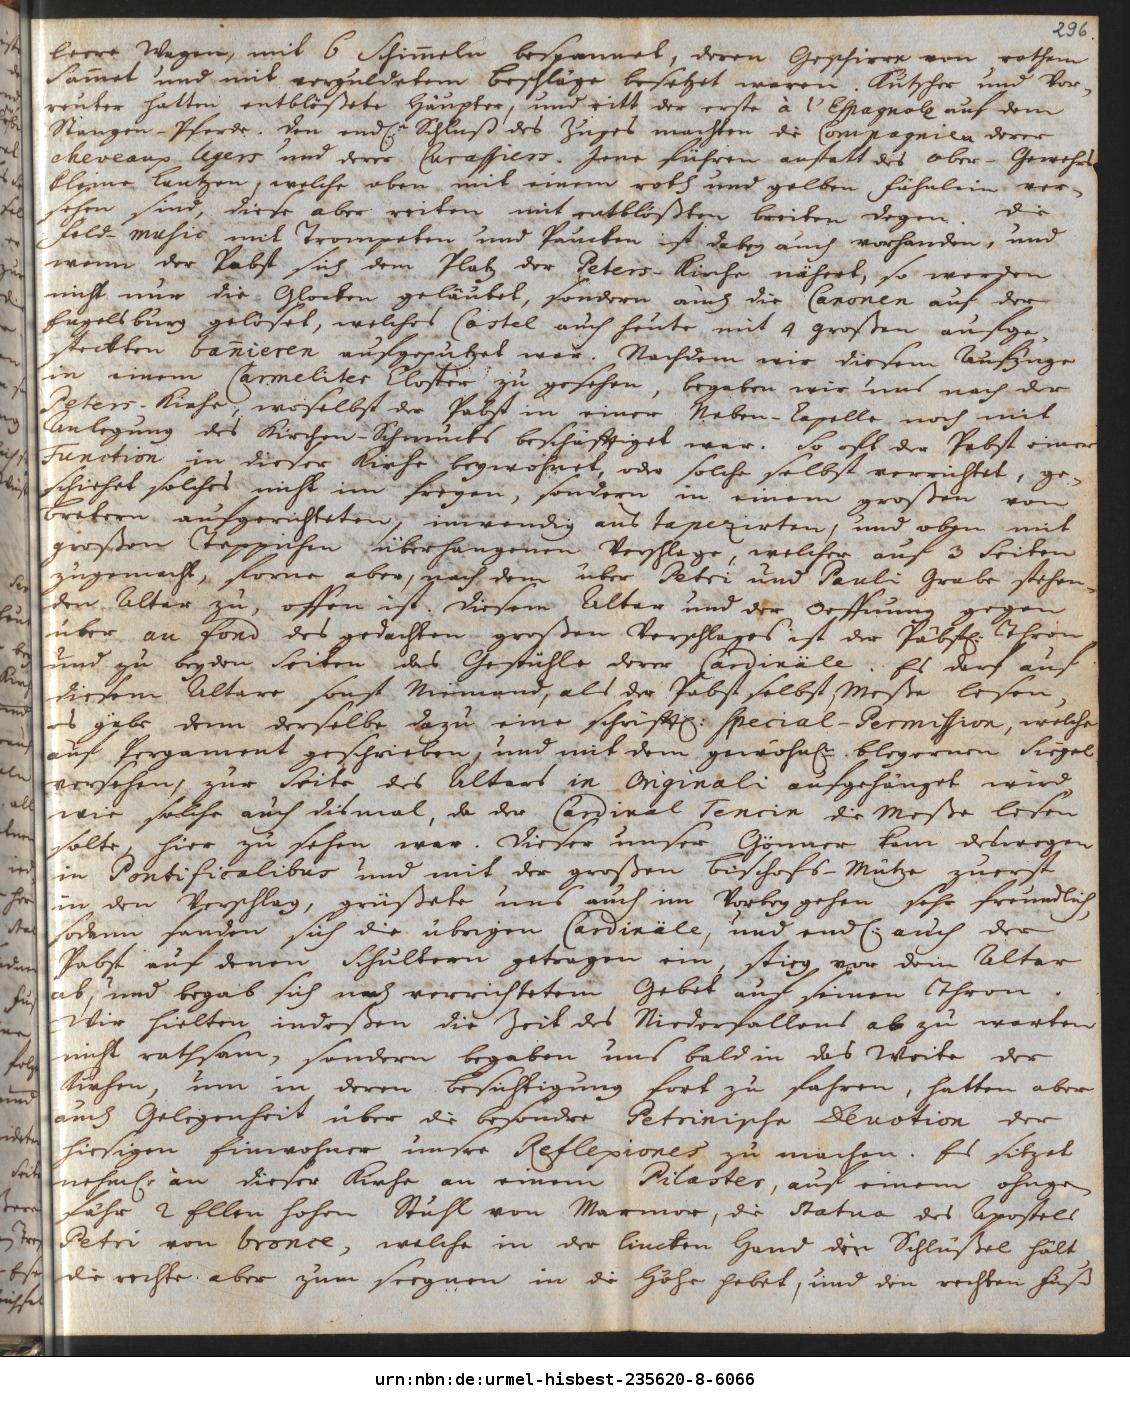 296.
leere Wagen, mit 6 Schim̄eln bespannet, deren Geschirre von rothem
Sam̄et und mit verguldetem Beschläge besetzet waren. Kutscher und Vor-
reuter hatten entblößete Häupter, und ritt der erste à l'Espagnole auf dem
Stangen-Pferde. Den endl: Schluß des Zuges machten die Compagnien derer
cheveaux legers und derer Curassiers. Jene führen anstatt des Ober-Gewehrs
kleine Lantzen, welche oben mit einem roth und gelben Fähnlein ver-
sehen sind, diese aber reiten mit entblößten breiten Degen. Die
Feld-Music mit Trompeten und Paucken ist dabey auch vorhanden, und
wenn der Pabst sich dem Platz der Peters-Kirche nähert, so werden
nicht nur die Glocken geläutet, sondern auch die Canonen auf der
Engelsburg gelöset, welches Castel auch heute mit 4 großen aufge-
steckten ban̄ieren aufgeputzet war. Nachdem wir diesem Aufzuge
in einem Carmeliter Closter zu gesehen, begaben wir uns nach der
Peters-Kirche, woselbst der Pabst in einer Neben-Capelle noch mit
Anlegung des Kirchen-Schmucks beschäfftiget war. So oft der Pabst einer
Function in dieser Kirche beywohnet, oder solche selbst verrichtet, ge-
schiehet solches nicht im freyen, sondern in einem großen von
Bretern aufgerichteten, inwendig aus tapezirten, und oben mit
großen Teppichen überhangenen Verschlage, welcher auf 3 Seiten
zugemacht, forne aber, nach dem über Petri und Pauli Grabe stehen-
den Altar zu, offen ist. Diesem Altar und der Oeffnung gegen
über au fond des gedachten großen Verschlages ist der Päbstl: Thron
und zu beyden Seiten das Gestühle derer Cardinäle. Es darf auf
diesem Altare sonst Niemand, als der Pabst selbst, Meße lesen,
es gebe denn derselbe dazu eine schriftl: special-Permission, welche
auf Pergament geschrieben, und mit dem gewöhnl: bleyernen Siegel
versehen, zur Seite des Altars in Originali aufgehänget wird,
wie solche auch dismal, da der Cardinal Tencin die Meße lesen
solte, hier zu sehen war. Dieser unser Gönner kam deswegen
in Pontificalibus und mit der großen Bischofs-Mütze zuerst
in den Verschlag, grüßete uns auch im Vorbeygehen sehr freundlich,
sodann fanden sich die übrigen Cardinäle, und endl: auch der
Pabst auf denen Schultern getragen ein, stieg vor dem Altar
ab, und begab sich nach verrichtetem Gebet auf seinen Thron.
Wir hielten indeßen die Zeit des Niederfallens ab zu warten
nicht rathsam, sondern begaben uns bald in das Weite der
Kirchen, um in deren Besichtigung fort zu fahren, hatten aber
auch Gelegenheit über die besondre Petrinische Devotion der
hiesigen Einwohner unsre Reflexiones zu machen. Es sitzet
nehml: an dieser Kirche an einem Pilaster, auf einem ohnge-
fähr 2 Ellen hohen Stuhl von Marmor, die Statua des Apostels
Petri von bronce, welche in der lincken Hand den Schlüßel hält
die rechte aber zum seegnen in die Höhe hebet, und den rechten Fuß
urn:nbn:de:urmel-hisbest-235620-8-6066